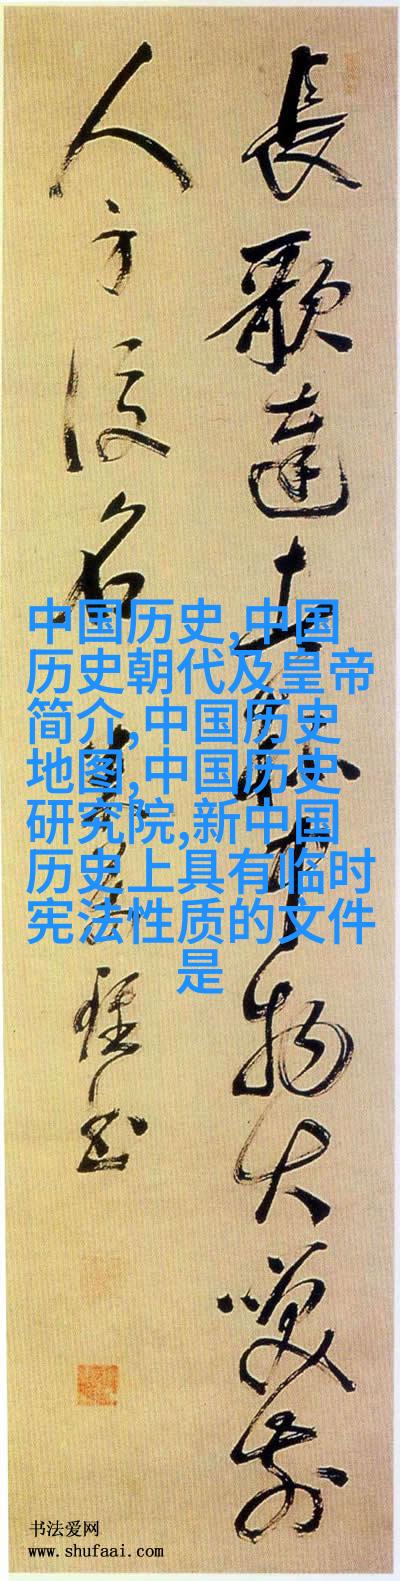 長歌達士杯中物大笑前
人身後名
中国历史,中国
历史朝代及皇帝
简介,中国历史
地图,中国历史
研究院,新中国
历史上具有临时
宪法性质的文件
是
书法爱网
www.shufaai.com